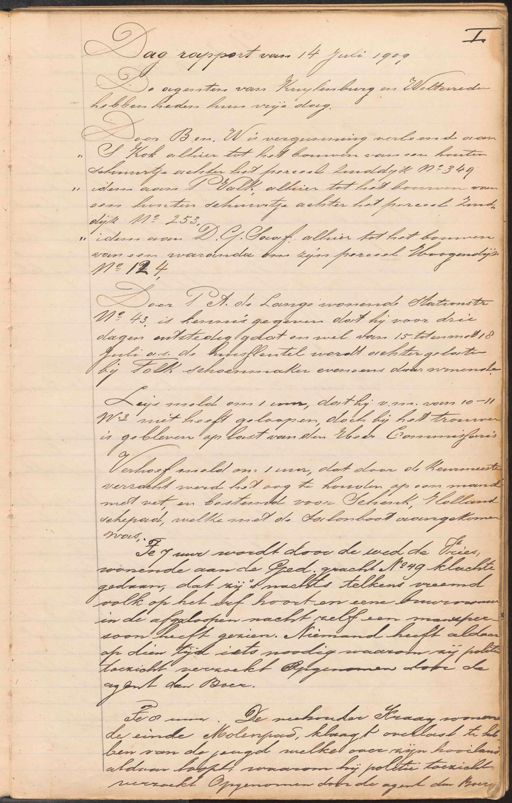 I
Dag rapport van 14 Juli 1909
De agenten van Kuylenburg en Weltevrede
hebben heden hun vrije dag.
Door B en W is vergunning verleend aan
" S Kok alhier tot het bouwen van een houten
schuurtje achter het perceel Zuiddijk No 349
" idem aan P Valk alhier tot het bouwen van
een houten schuurtje achter het perceel Zuid-
dijk No 253,
" idem aan D. G. Graaf alhier tot het bouwen
van een waranda aan zijn perceel Hoogendijk
No 124
Door P A. de Lange wonende Stationstr
No 43, is kennis gegeven dat hij voor drie
dagen en wel van 15 tot en met 18
Juli a.s. de huissleutel wordt achtergelaten
bij Folk schoenmaker eveneens daar wonende
Leijs meld om 1 uur, dat hij v.m. van 10-11
W3 niet heeft geloopen, doch bij het trouwen
is gebleven op last van den Heer Commissaris
Verhoef meld om 1 uur, dat door de Keurmeester
verzocht werd het oog te houden op een mand
met vet, en bestemd voor Schenk, Holland
, welke met de Salonboot aangekomen
was.
Te 7 uur wordt door de wed de Vries,
wonende aan de Ged. gracht No 49 klachte
gedaan, dat zij 's nachts telkens vreemd
volk op het erf hoort en eene buurvrouw
in de afgeloopen nacht zelf een manspersoon
soon heeft gezien. Niemand heeft aldaar
op dien tijd iets noodig waarom zij politie
toezicht verzoekt Opgenomen door de
agent den Boer.
Te 8 uur. De veehouder Kraay wonende
de einde Molenpad, klaagt overlast te heb
ben van de jeugd welke over zijn hooiland
aldaar loopt, waarom hij politie toezicht
verzoekt Opgenomen door de agent den Boer